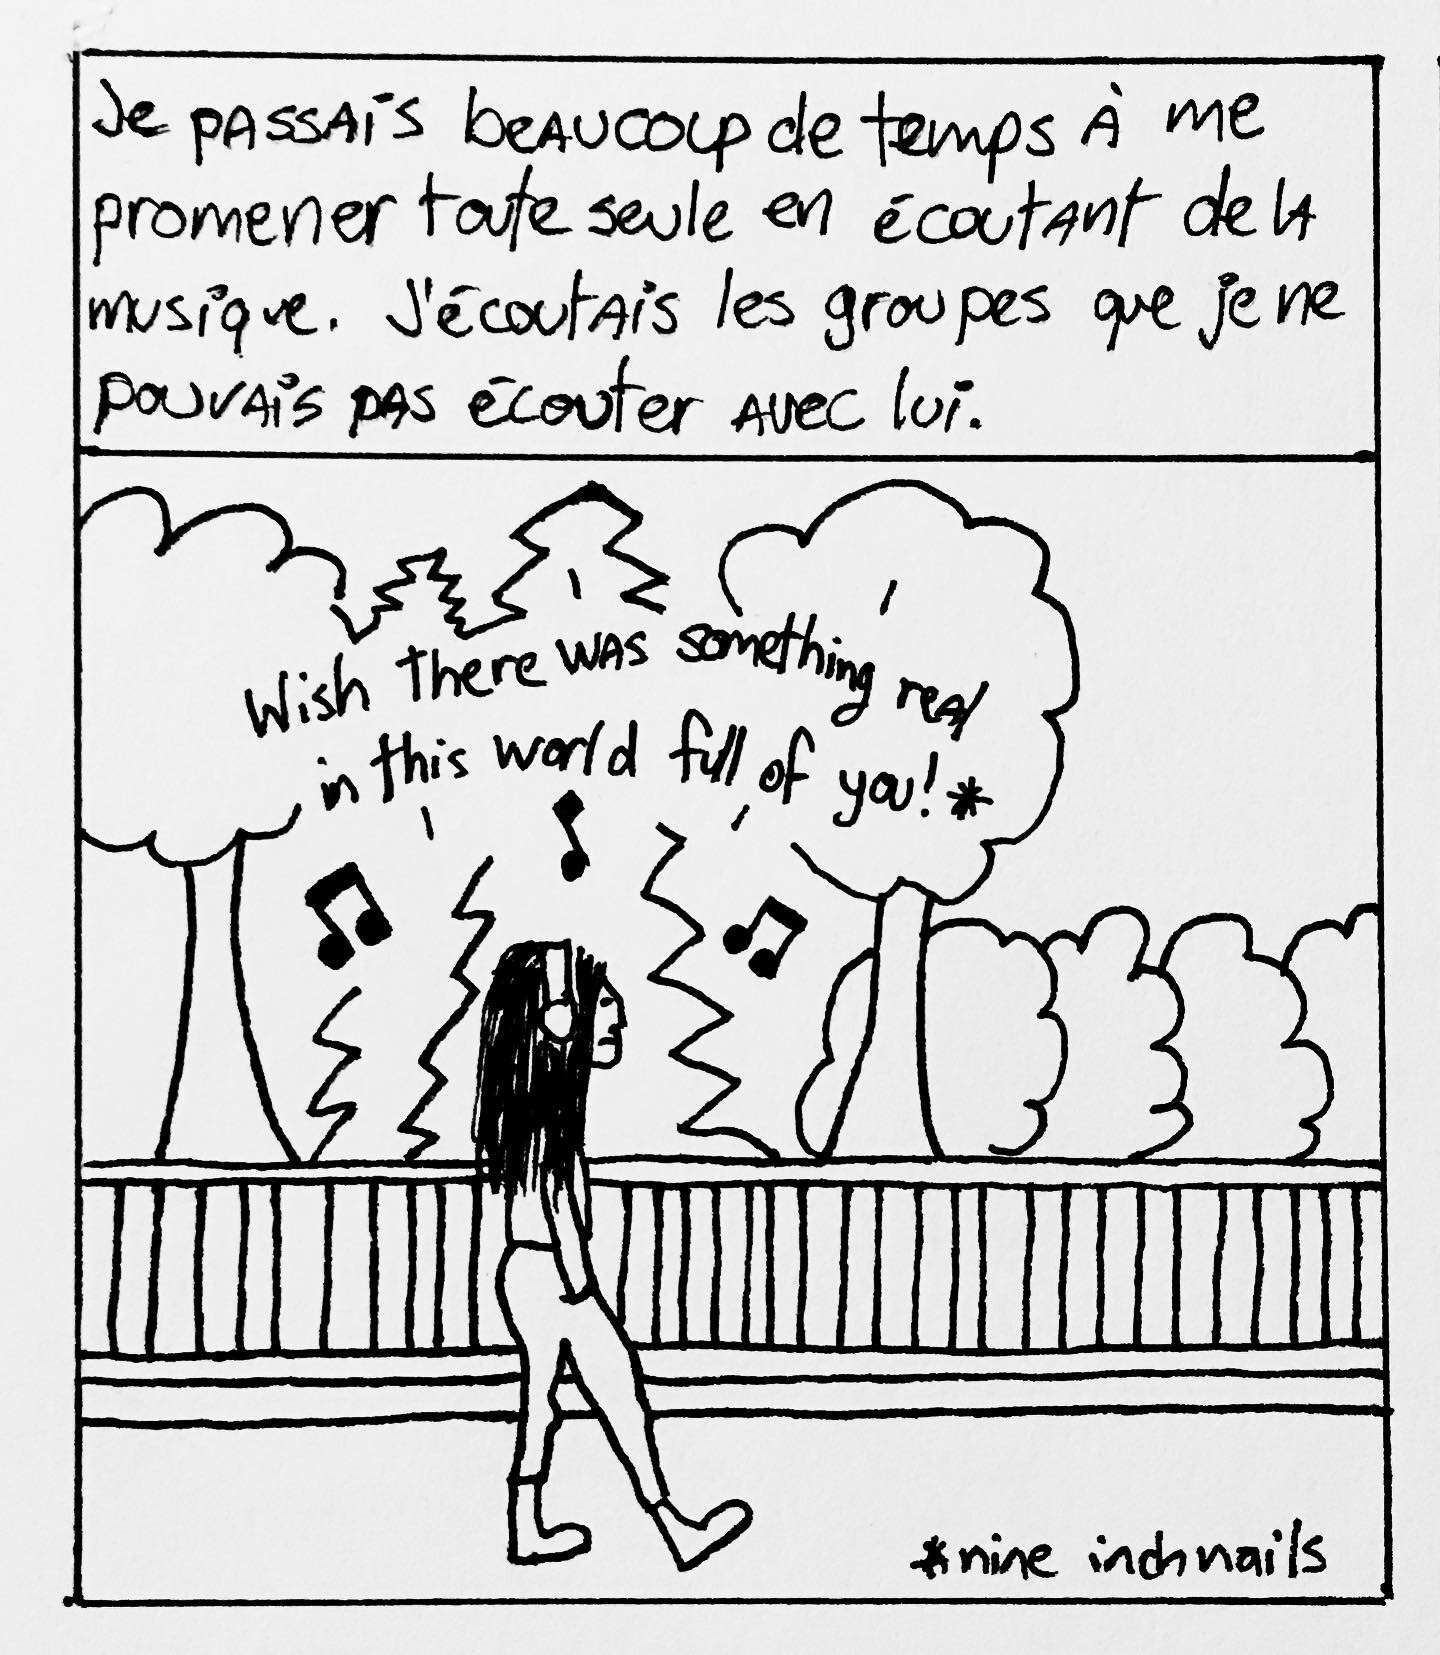 Je passais beaucoup de temps à me
promener toute seule en écoutant de la
musique. J'écoutais les groupes que je ne
pouvais pas écouter avec lui.
Wish there was something real
in this world full of you!*
*nine inch nails